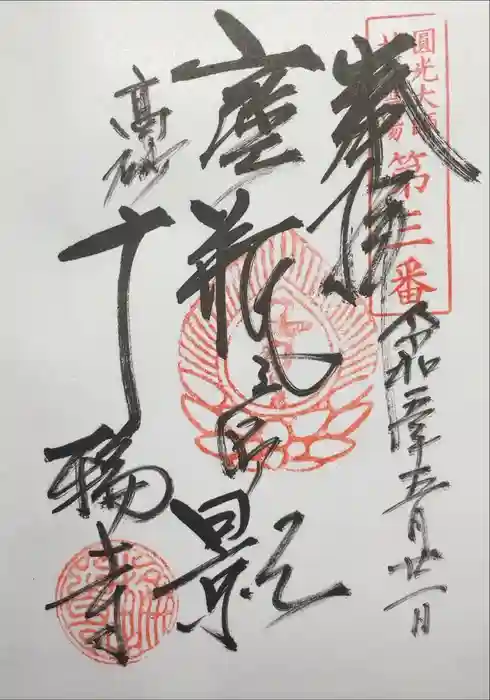 圓光大師
霊場
第三番
奉拝
令和年五月廿一日
宝瓶之御影
高砂
十輪寺